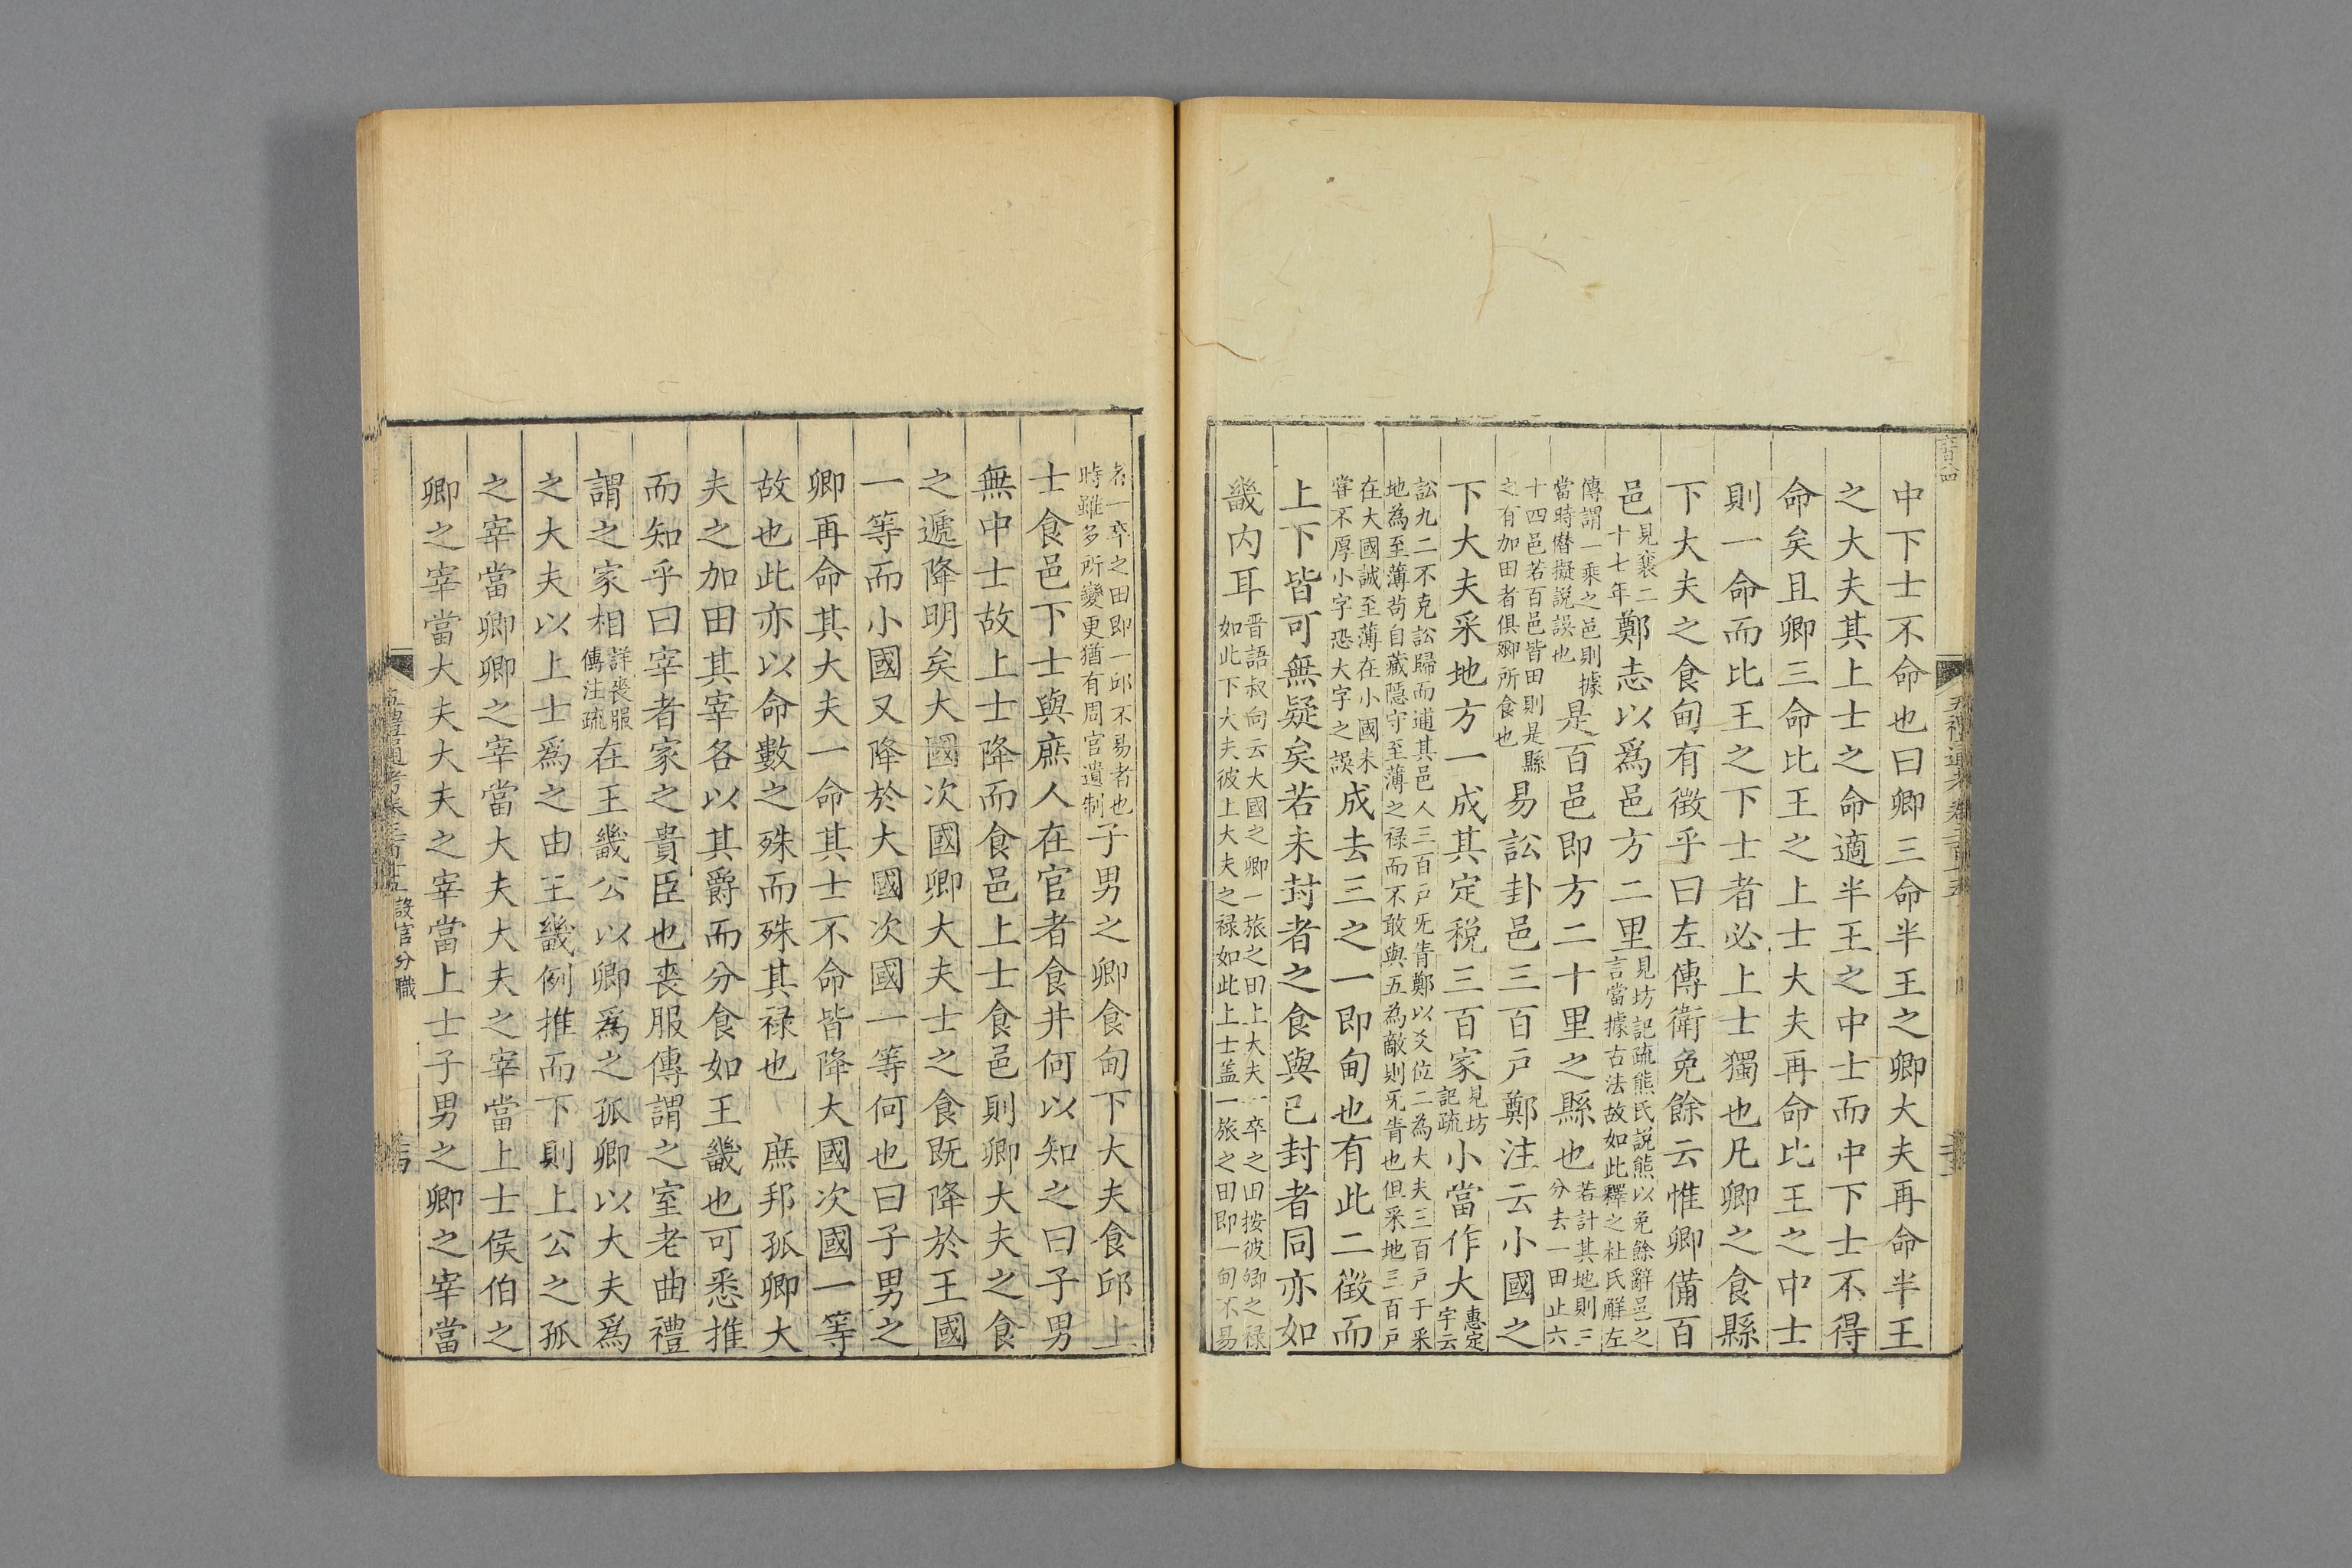 中下士不命也曰卿三命半王之卿大夫再命半王
之大夫其上士之命適半王之中士而中下士不得
命矣且卿三命比王之上士大夫再命比王之中士
則一命而比王之下士者必上士獨也凡卿之食縣
下大夫之食甸有徵乎曰左傳衛免餘云惟卿備百
邑見襄二十七年鄭志以爲邑方二里見坊記疏熊氏說熊以免餘辭邑之言當據古法故如此釋之杜氏解左
傳謂一乘之邑則據當時僭擬説誤也是百邑即方二十里之縣也若計其地則三分去一田止六
十四邑若百邑皆田則是縣之有加田者俱卿所食也易訟卦邑三百戸鄭注云小國之
下大夫采地方一成其定税三百家見坊記疏小當作大惠定宇云
訟九二不克訟歸而逋其邑人三百戸旡眚鄭以爻位二為大夫三百戸于采地為至薄苟自藏隱守至薄之禄而不敢與五為敵則旡眚也但采地三百戸
在大國誠至薄在小國未嘗不厚小字恐大字之誤成去三之一即甸也有此二徴而
上下皆可無疑矣若未封者之食與已封者同亦如
畿内耳晋語叔向云大國之卿一旅之田上大夫一卒之田按彼卿之禄如此下大夫彼上大夫之禄如此上士盖一旅之田即一甸不易
者一卒之田即一邱不易者也時雖多所變更猶有周官遺制子男之卿食甸下大夫食邱上
士食邑下士與庶人在官者食井何以知之曰子男
無中士故上士降而食邑上士食邑則卿大夫之食
之遞降明矣大國次國卿大夫士之食既降於王國
一等而小國又降於大國次國一等何也曰子男之
卿再命其大夫一命其士不命皆降大國次國一等
故也此亦以命數之殊而殊其禄也　庶邦孤卿大
夫之加田其宰各以其爵而分食如王畿也可悉推
而知乎曰宰者家之貴臣也喪服傳謂之室老曲禮
謂之家相詳喪服傳注疏在王畿公以卿爲之孤卿以大夫爲
之大夫以上士爲之由王畿例推而下則上公之孤
之宰當卿卿之宰當大夫大夫之宰當上士侯伯之
卿之宰當大夫大夫之宰當上士子男之卿之宰當
五禮通考卷二百十五 設官分職